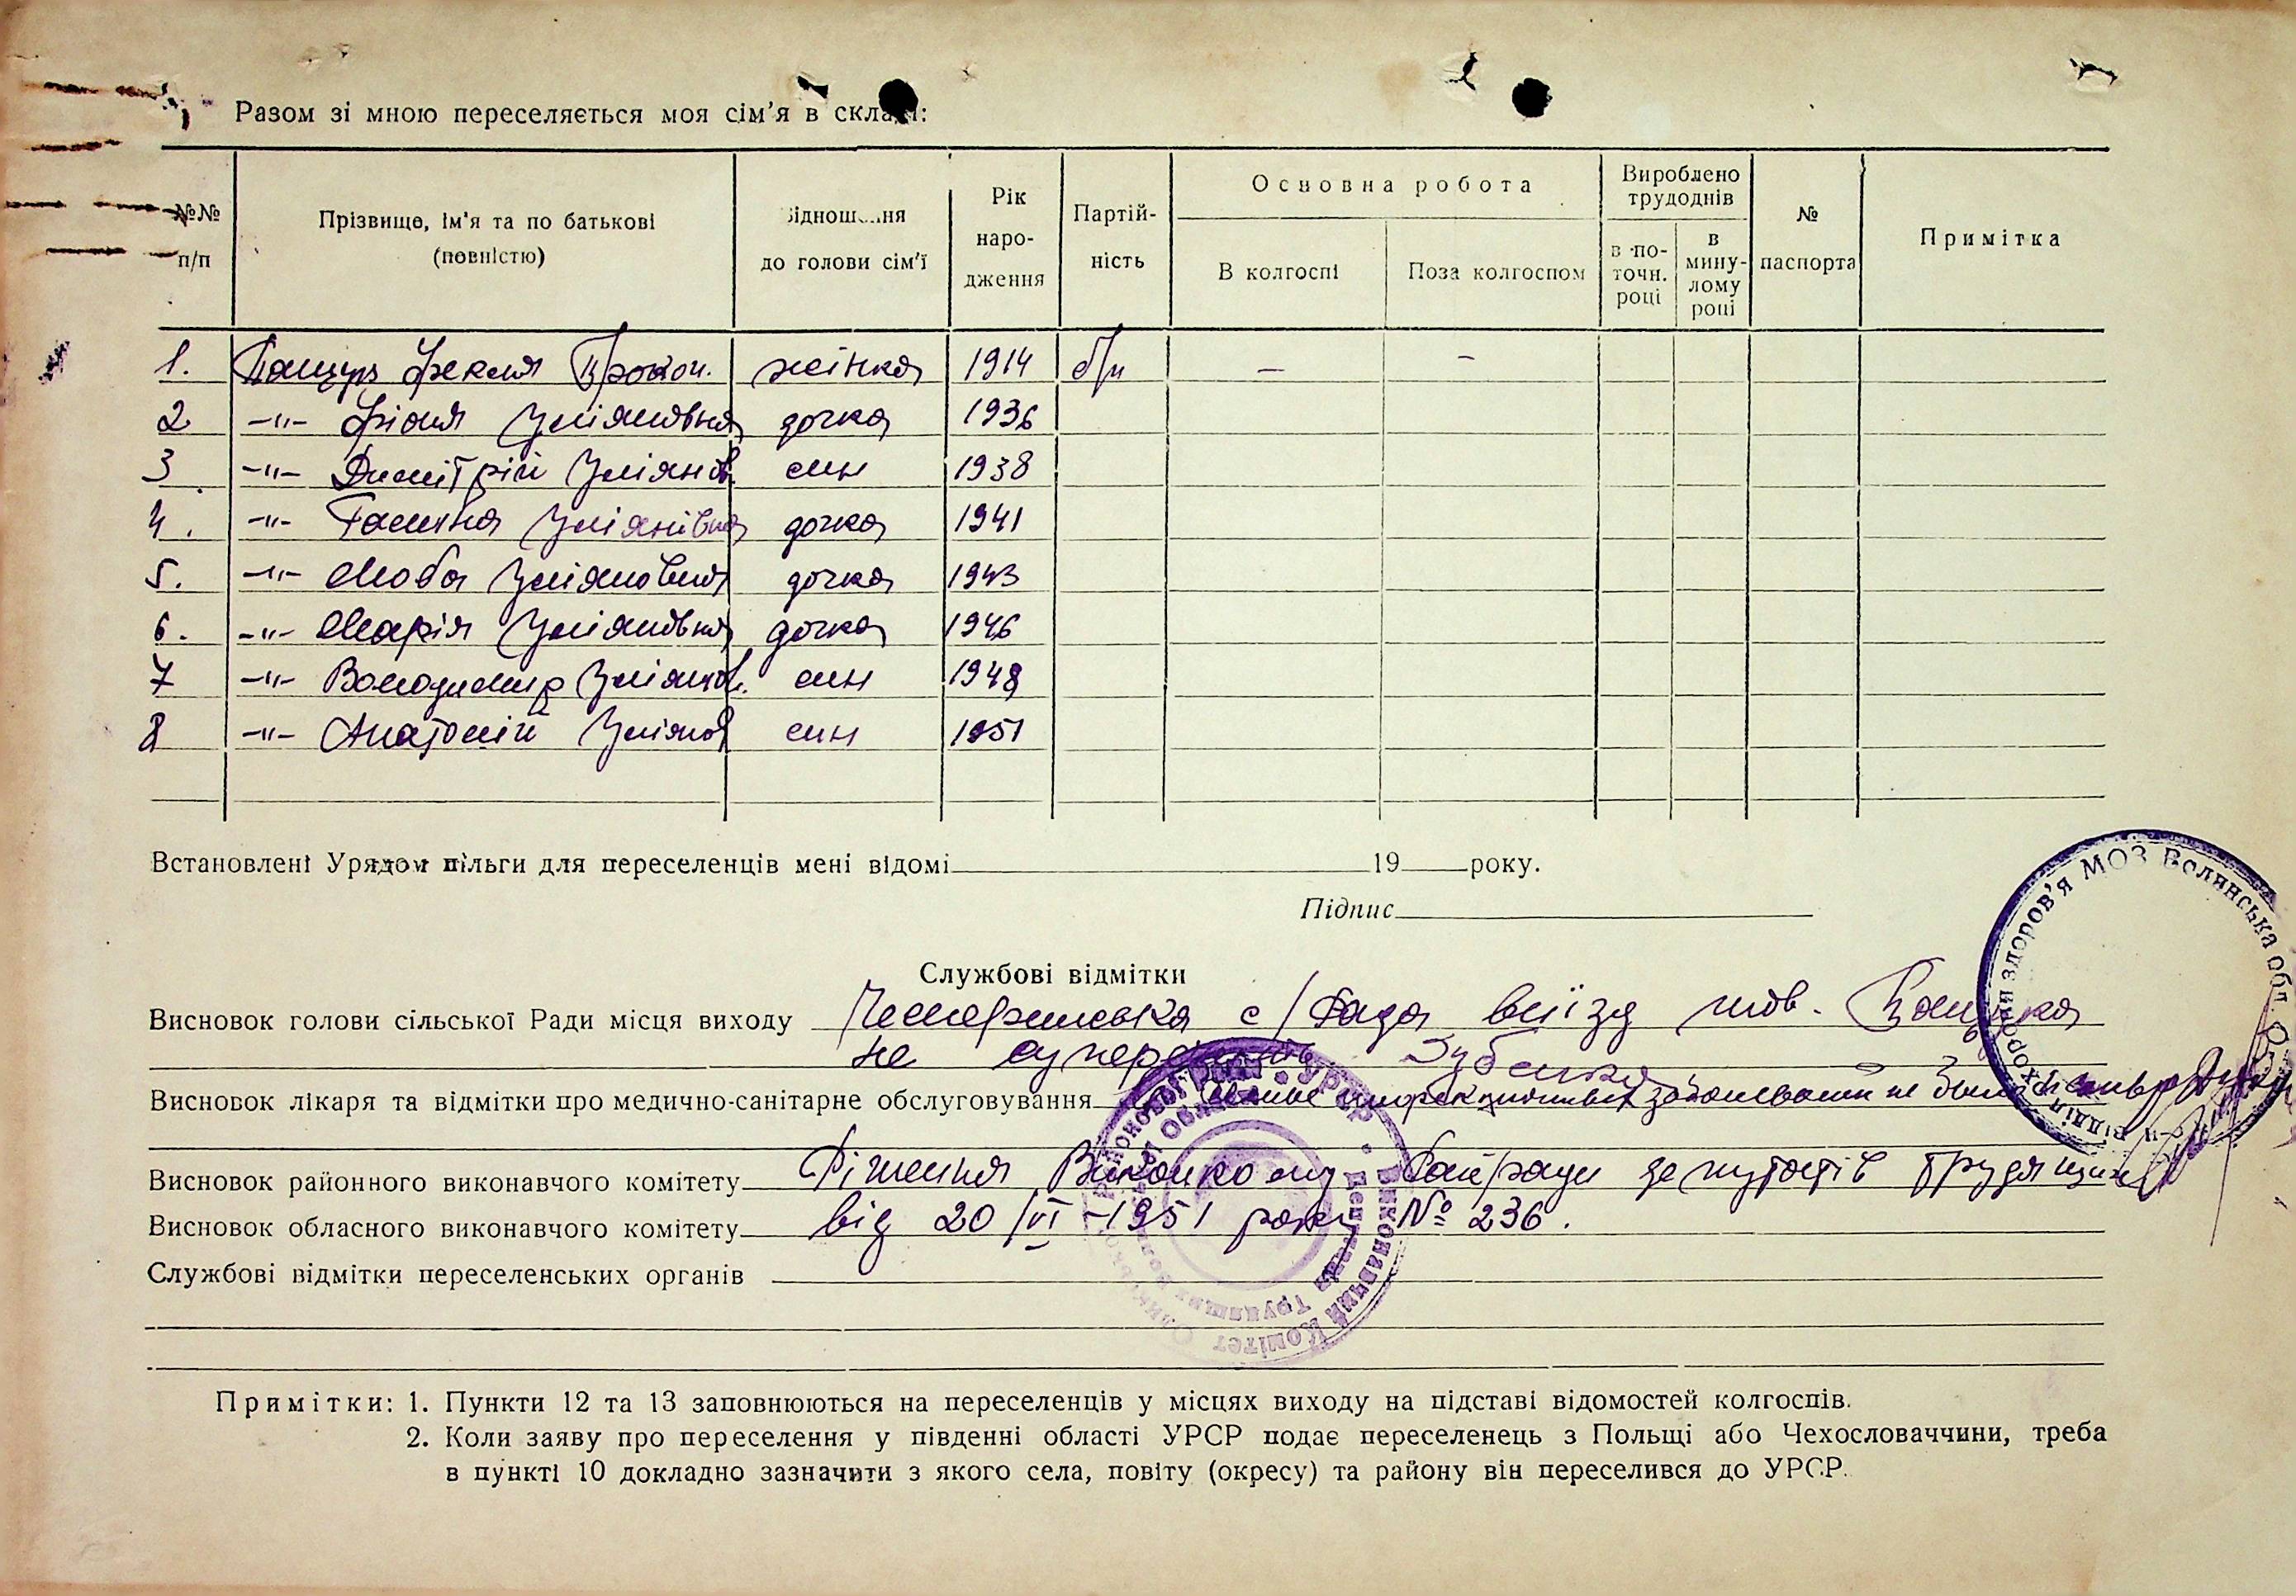 Разом зі мною переселяється моя сім'я в складі:
№№ п/п
Прізвище, ім'я та по батькові (повністю)
Відношення до голови сім'ї
Рік народження
Партійність
Основна робота
В колгоспі
Поза колгоспом
Вироблено трудоднів
в поточн. році
в минулому році
№ паспорта
Примітка
1. Пащук Фекля Прокоп. жінка 1914 б/п – –
2 -"- Уліяновна дочка 1936
3 -"- Димітрій Уліянов. син 1938
4. -"- Галина Уліянівна дочка 1941
5. -"- Люба Уліяновна дочка 1943
6. -"- Марія Уліяновна дочка 1946
7 -"- Володимир Уліянов. син 1948
8 -"- Анатолій Уліянов син 1951
Встановлені Урядом пільги для переселенців мені відомі 19 року.
Підпис
Службові відмітки
Висновок голови сільської Ради місця виходу с/Рада виїзд тов. Пащука
не
Висновок лікаря та відмітки про медично-санітарне обслуговування
Висновок районного виконавчого комітету Рішення Виконкому Райради депутатів трудящих
Висновок обласного виконавчого комітету від 20/VI-1951 року № 236.
Службові відмітки переселенських органів
Примітки: 1. Пункти 12 та 13 заповнюються на переселенців у місцях виходу на підставі відомостей колгоспів.
2. Коли заяву про переселення у південні області УРСР подає переселенець з Польщі або Чехословаччини, треба
в пункті 10 докладно зазначити з якого села, повіту (окресу) та району він переселився до УРСР.
здоров'я МОЗ Волинська обл.
УРСР · Виконавчий Комітет
Депутатів Трудящих